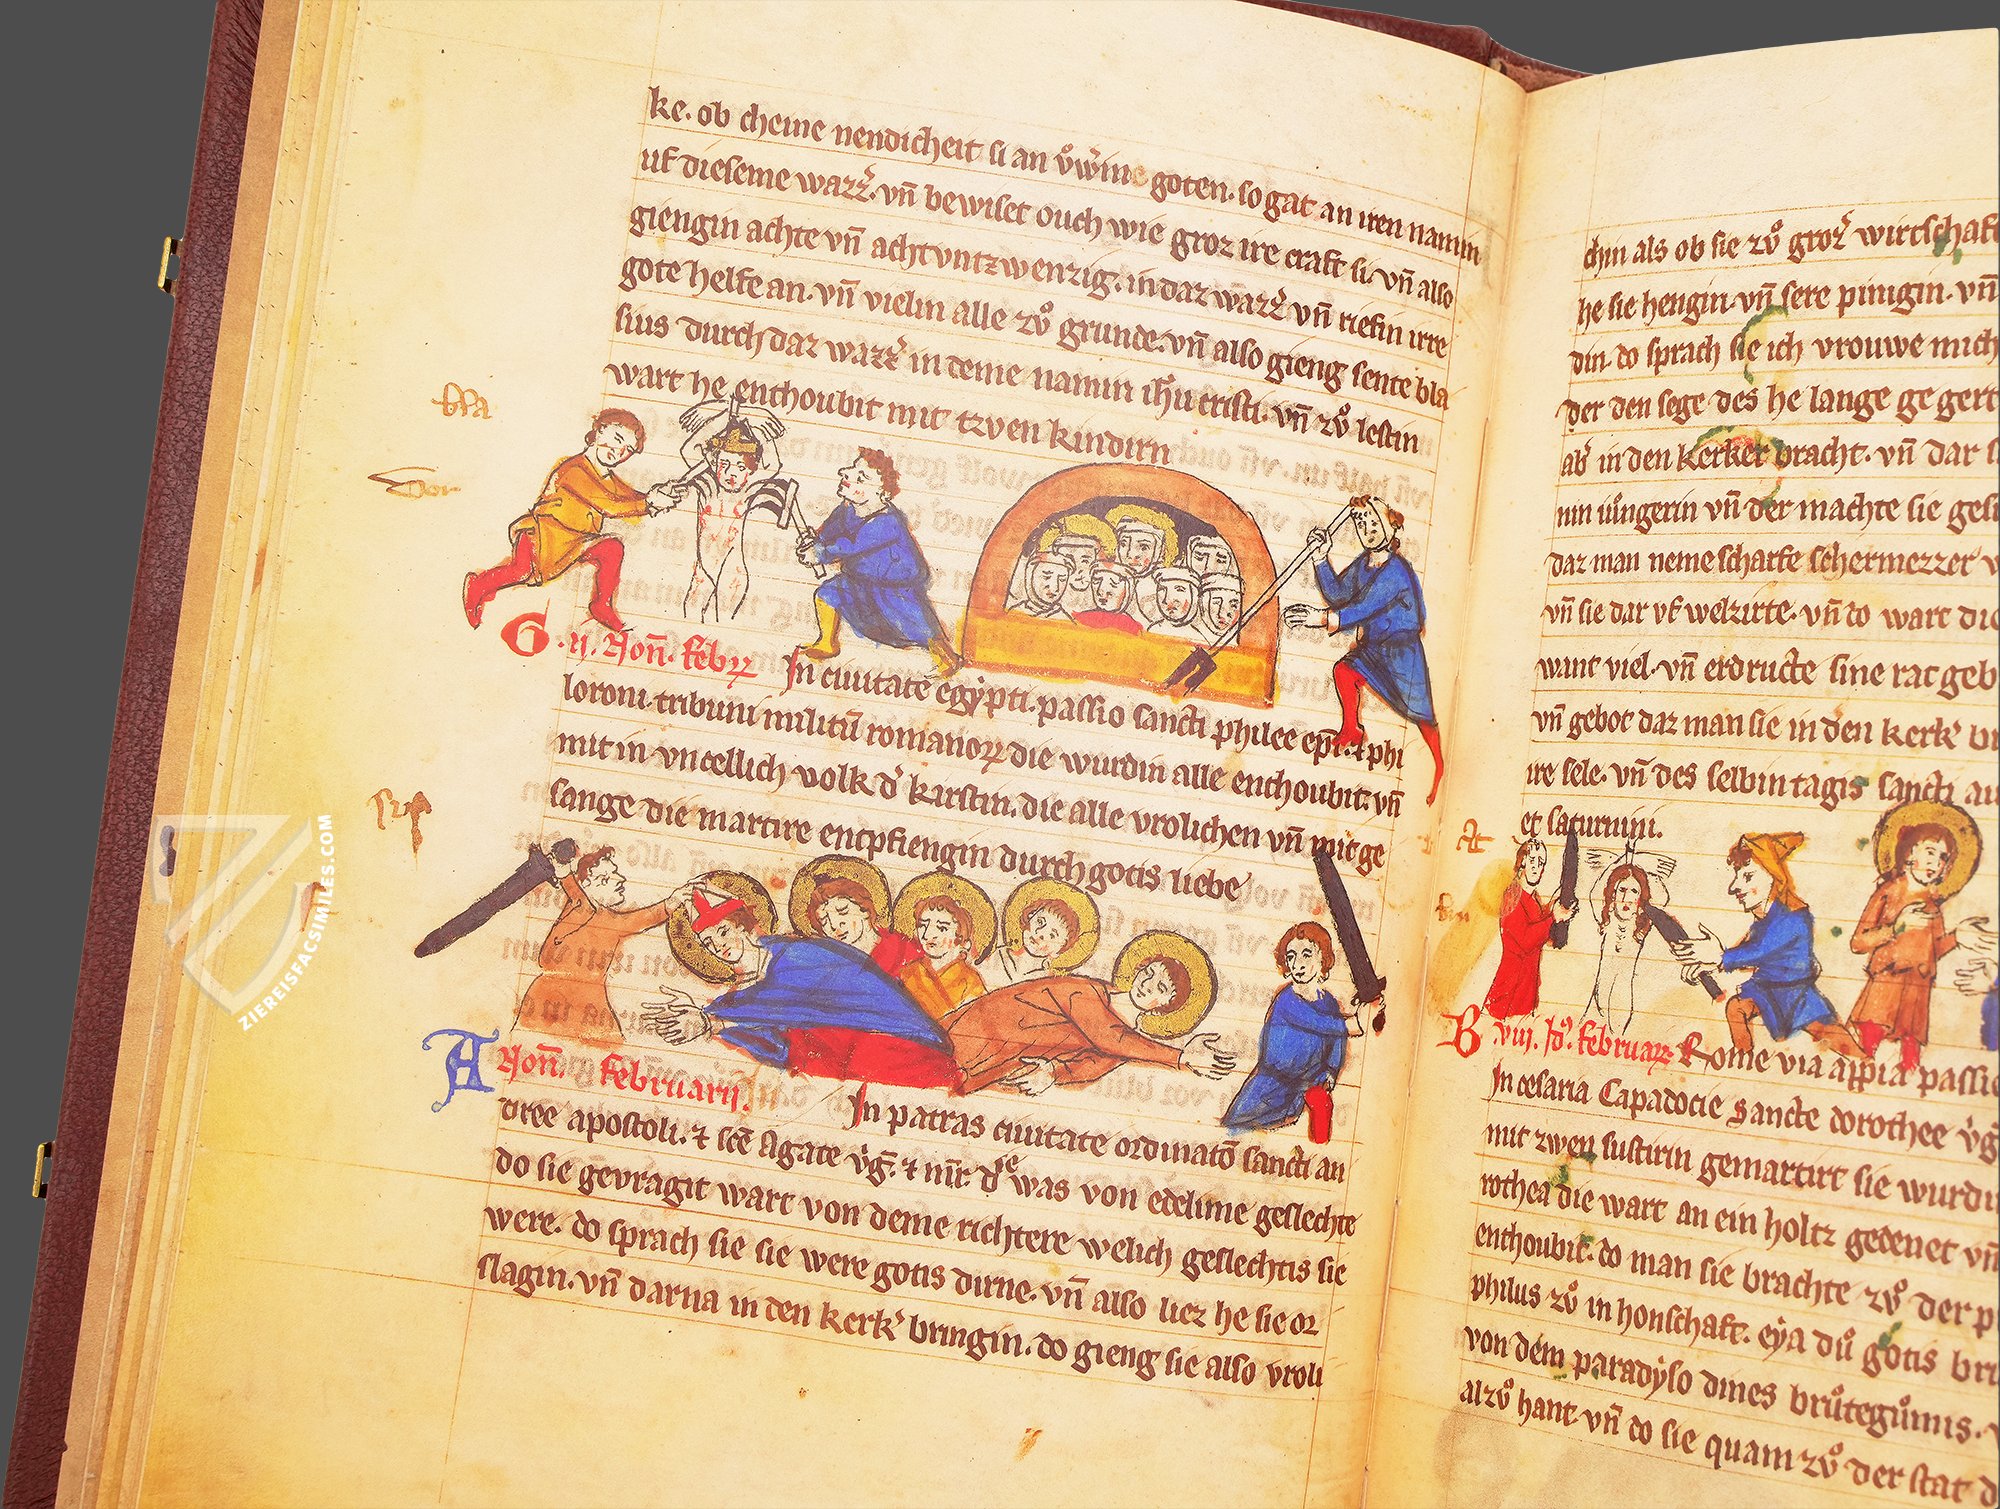 ke. ob cheine nendicheit si an vͦwͥin goten. so gat an iren namin
uf dieseme wazzͥ. vn̄ bewiset ouch wie groz ire craft si. vn̄ also
giengin achte vn̄ acht vntzwenzig. in daz wazzͥ vn̄ riefin irre
gote helfe an. vn̄ vielin alle zvͦ grunde. vn̄ also gieng sente bla
sius durch daz wazzͥ in deme namin ih̄u cristi. vn̄ zvͦ lestin
wart he enthoubit mit tzven kindirn
bla
G .ij. Non̄. febrꝝ In ciuitate egypti. passio sancti philee ep̄i. ⁊ phi
loromi. tribuni militū romanoꝝ die wurdin alle enthoubit. vn̄
mit in vncellich volk dͥ kirstin. die alle vrolichen vn̄ mit ge
sange die martire entpfiengin durch gotis liebe
A Non̄. februarij. In patras ciuitate ordinatō sancti an
dree apostoli. ⁊ sc̄e Agate vͥḡ. ⁊ mr̄. dͤ was von edelime geslechte
do sie gevragit wart von deme richtere welich geslechtis sie
were. do sprach sie sie were gotis dirne. vn̄ also liez he sie or
slagin. vn̄ darna in den kerkͥ bringin. do gieng sie also vroli
chin als ob sie zvͦ grozͥ wirtschaft
he sie hengin. vn̄ sere pinigin. vn̄
din. do sprach sie ich vrouwe mich
der den sege des he lange ge gert
abͥ in den kerker bracht. vn̄ dar
nin iuͦngerin vn̄ der machte sie
daz man neme scharfe schermezzer
vn̄ sie dar vf welzirte. vn̄ do wart
want viel. vn̄ erdructe sine rat geb
vn̄ gebot daz man sie in den kerkͥ
ire sele. vn̄ des selbin tagis sancti
et saturnini.
B .viij. Id̄. februarꝝ Rome via appia passio
In cesaria Capadocie sancte dorothee vͥḡ
mit zwen sustirin gemartirt sie wurdin
rothea die wart an ein holtz gedenet vn̄
enthoubit. do man sie brachte zvͦ der
philus zvͦ in honschaft. eya duͦ gotis
von dem paradyso dines bruͦteguͦmis.
alzvͦ hant. vn̄ do sie quam zvͦ der stat
ZIEREISFACSIMILES.COM